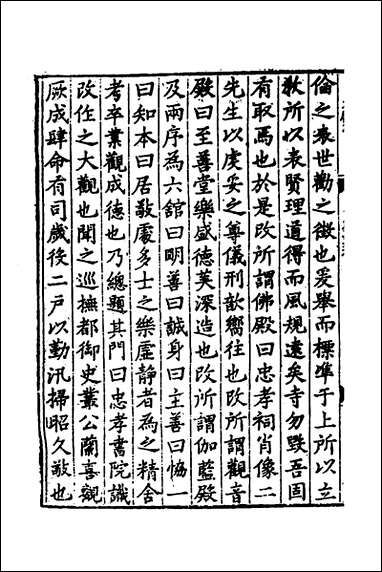 倫之表世勸之徵也爰舉而標凖于上所以立
教所以表賢理道得而風規遠矣寺勿毀吾固
有取焉也於是改所謂佛殿曰忠孝祠肖像二
先生以虔妥之尊儀刑歆嚮往也改所謂觀音
殿曰至善堂樂盛德美深造也改所謂伽藍殿
及兩序為六舘曰明善曰誠身曰主善曰恊一
曰知本曰居敬處多士之樂虛静者為之精舍
考卒業觀成德也乃總題其門曰忠孝書院識
改作之大觀也聞之巡撫都御史叢公蘭喜觀
厥成肆命有司歲後二戸以勤汛掃昭久敬也